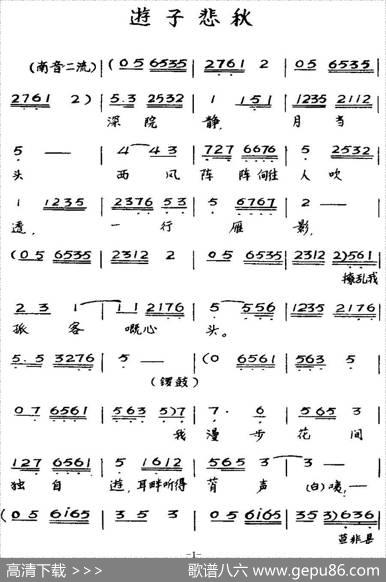 遊子悲秋
(南音二流) (0 5 6535 | 2761 2 | 0 5 6535 |
2761 2) | 5.3 2532 | 1 151 | 1235 2112 |
深院 静, 月当
5 — — | 4 43 | 727 6676 | 5 2532 |
头 西风 阵阵 人吹
1 1235 | 2376 53 | 5 6767 | 2 — |
透, 一行 雁 影,
(0 5 6535 | 2312 2 | 0 5 6535 | 2312 2)561 |
撩乱我
2 3 1 | 11 2176 | 5 556 | 1235 2176 |
孤客 嘅心 头。
5.5 3276 | 5 — | (0 6561 | 563 5 |
(锣鼓)
0 7 6561 | 563 5)7 | 7. 6 | 565 3 |
我 漫步 花间
127 6561 | 5 1612 | 565 3 | 3 — — |
独自 遊, 耳畔听得 背声 (白)唉,—
(0 5 6165 | 3 5 3 | 0 5 6165 | 353)636 |
莫非是
-1-
高清下载 >>>
歌谱八六 www.gepu86.com